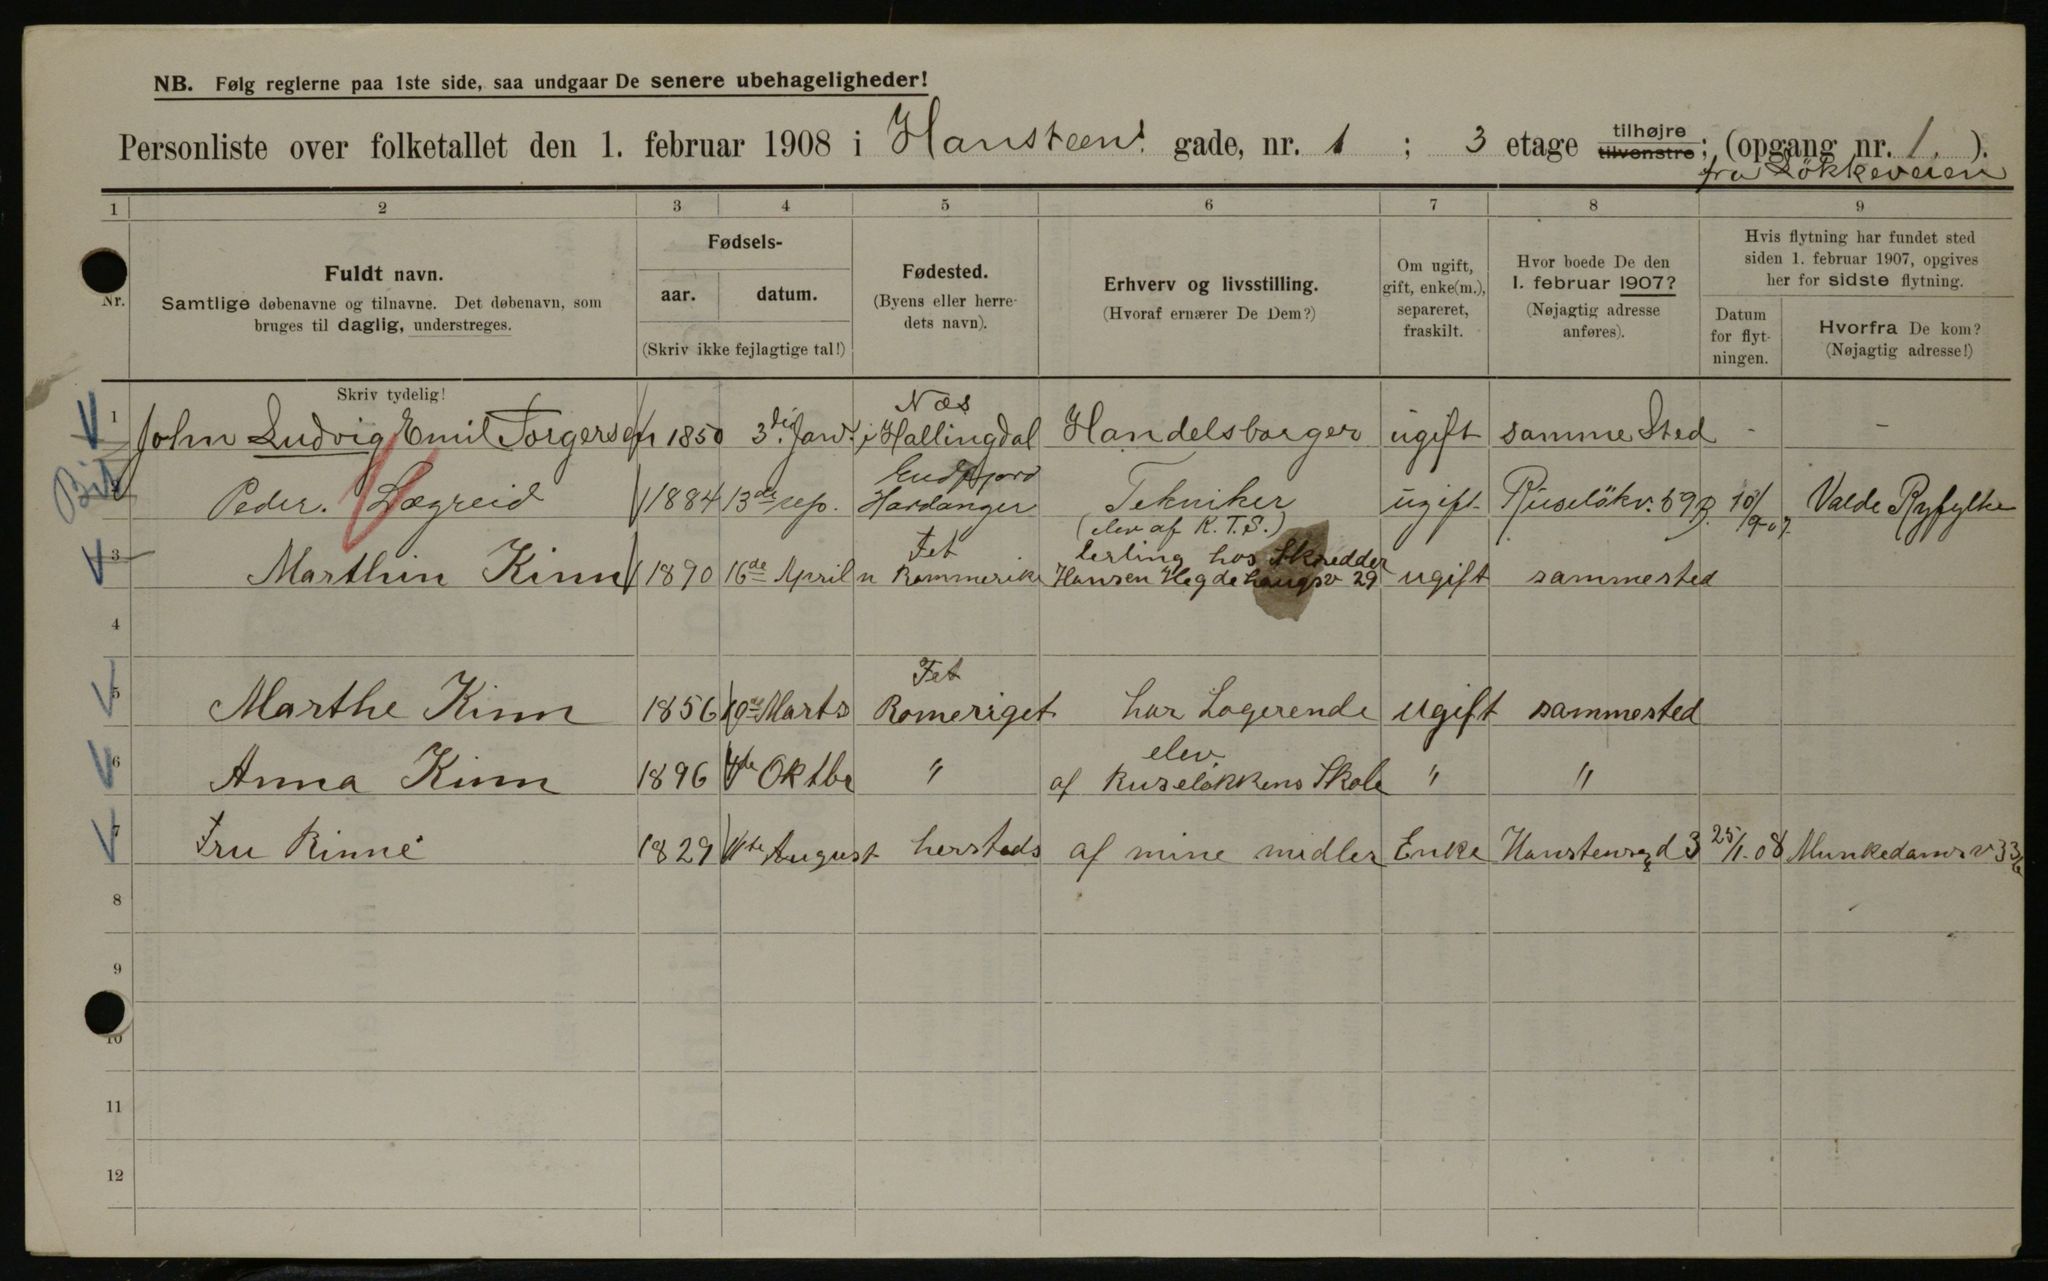 NB. Følg reglerne paa 1ste side, saa undgaar De senere ubehageligheder!
Personliste over folketallet den 1. februar 1908 i Hansteens gade, nr. 1 ; 3 etage tilhøjre tilvenstre ; (opgang nr. 1. ).
fra Løkkeveien
1 2 3 4 5 6 7 8 9
Nr.
Fuldt navn.
Samtlige døbenavne og tilnavne. Det døbenavn, som
bruges til daglig, understreges.
Skriv tydelig!
Fødsels-
aar. datum.
(Skriv ikke fejlagtige tal!)
Fødested.
(Byens eller herre-
dets navn).
Erhverv og livsstilling.
(Hvoraf ernærer De Dem?)
Om ugift,
gift, enke(m.),
separeret,
fraskilt.
Hvor boede De den
1. februar 1907?
(Nøjagtig adresse
anføres).
Hvis flytning har fundet sted
siden 1. februar 1907, opgives
her for sidste flytning.
Datum
for flyt-
ningen.
Hvorfra De kom?
(Nøjagtig adresse!)
Næs
1 John Ludvig Emil Torgersen 1850 3die Jan. i Hallingdal Handelsborger ugift samme Sted - -
Bit
Eidfjord
2 Peder. Lægreid 1884 13de sep. Hardanger Tekniker ugift Ruseløkv. 59 B. 10/9-07. Valde Ryfylke
(elev af K. T. S.)
Fet lerling hos Skredder
3 Marthin Kinn 1890 16de April n Rommerike Hansen Hegdehaugsv 29 ugift sammested
4
Fet
5 Marthe Kinn 1856 19de Marts Romeriget har Logerende ugift sammested
elev
6 Anna Kinn 1896 4de Oktbr " af Ruseløkkens Skole " "
7 Fru Rinné 1829 11te August hersteds af mine midler Enke Hanstensgd 3 25/1-08 Munkedamsv 33
8
9
10
11
12